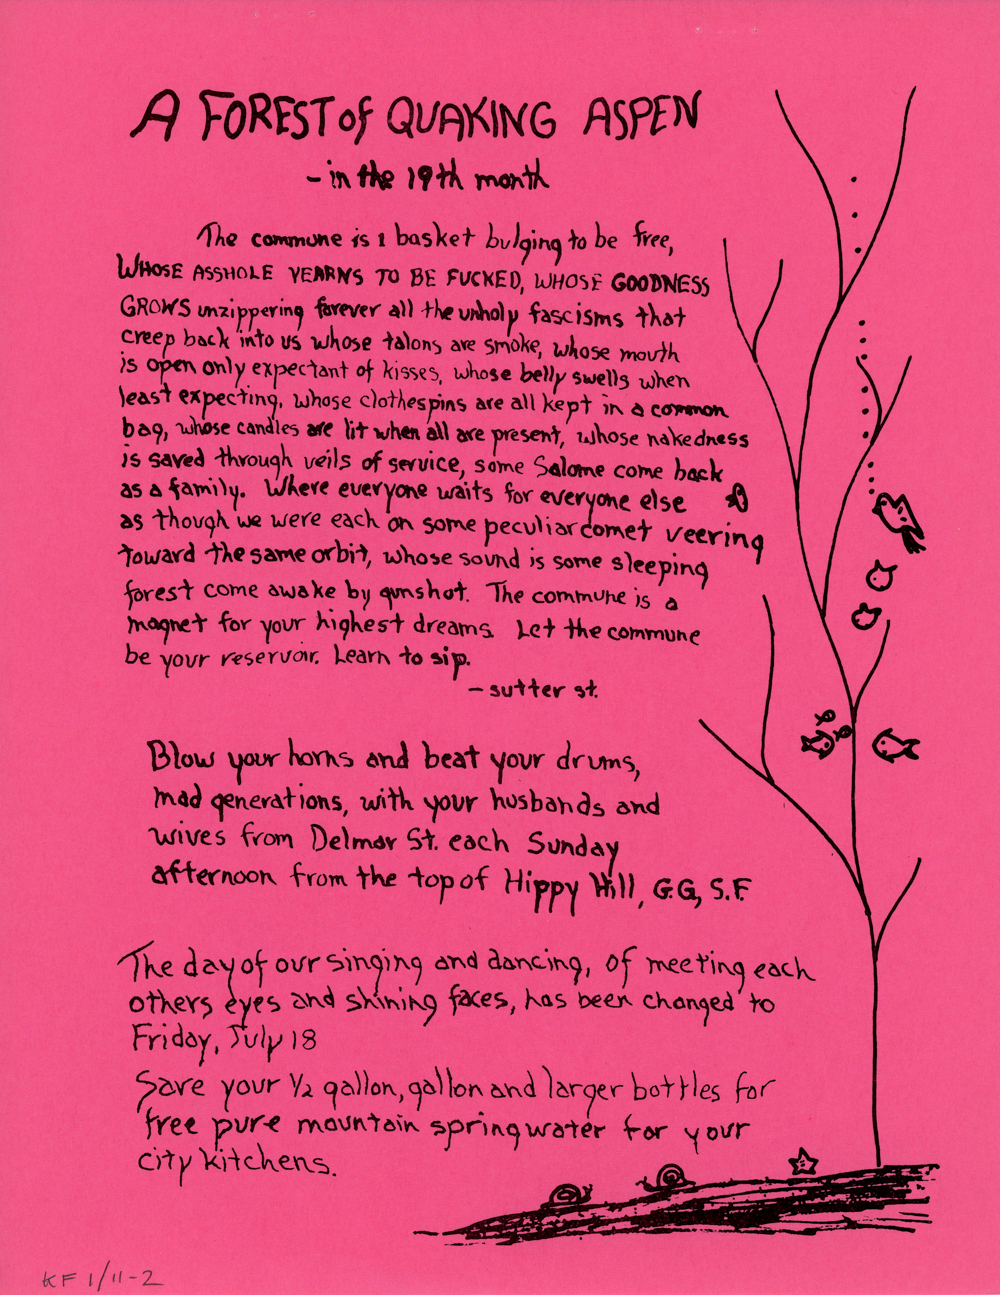 A FOREST of QUAKING ASPEN
- in the 19th month
The commune is a basket bulging to be free,
WHOSE ASSHOLE YEARNS TO BE FUCKED, WHOSE GOODNESS
GROWS unzippering forever all the unholy fascisms that
creep back into us whose talons are smoke, whose mouth
is open only expectant of kisses, whose belly swells when
least expecting, whose clothespins are all kept in a common
bag, whose candles are lit when all are present, whose nakedness
is saved through veils of service, some Salome come back
as a family. Where everyone waits for everyone else
as though we were each on some peculiar comet veering
toward the same orbit, whose sound is some sleeping
forest come awake by gunshot. The commune is a
magnet for your highest dreams. Let the commune
be your reservoir. Learn to sip.
- sutter st.
Blow your horns and beat your drums,
mad generations, with your husbands and
wives from Delmar St. each Sunday
afternoon from the top of Hippy Hill, G.G, S.F.
The day of our singing and dancing, of meeting each
others eyes and shining faces, has been changed to
Friday, July 18
Save your 1/2 gallon, gallon and larger bottles for
free pure mountain spring water for your
city kitchens.
KF 1/11-2